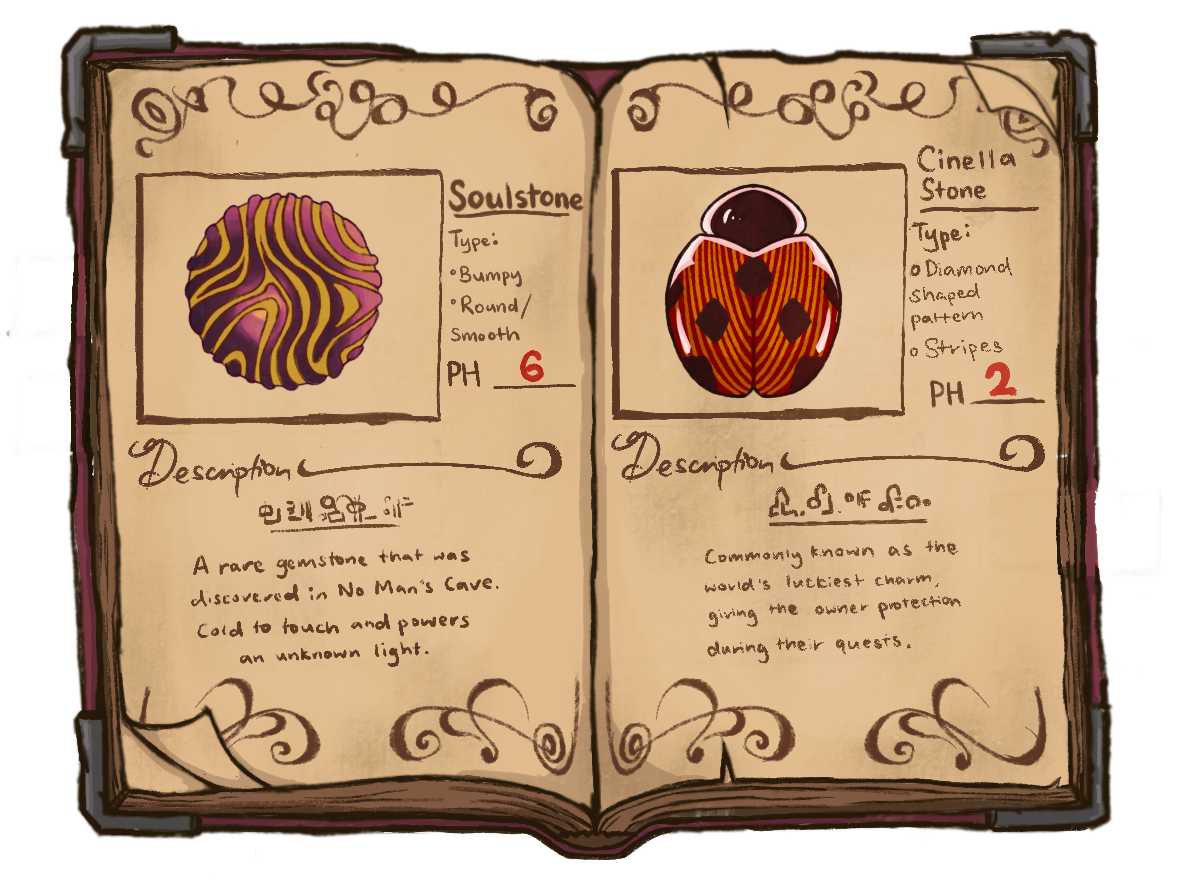 Soulstone
Type:
°Bumpy
°Round/
Smooth
PH 6
Description
A rare gemstone that was
discovered in No Man's Cave.
Cold to touch and powers
an unknown light.
Cinella
Stone
Type:
o Diamond
shaped
pattern
o Stripes
PH 2
Description
Commonly known as the
world's luckiest charm,
giving the owner protection
during their quests.